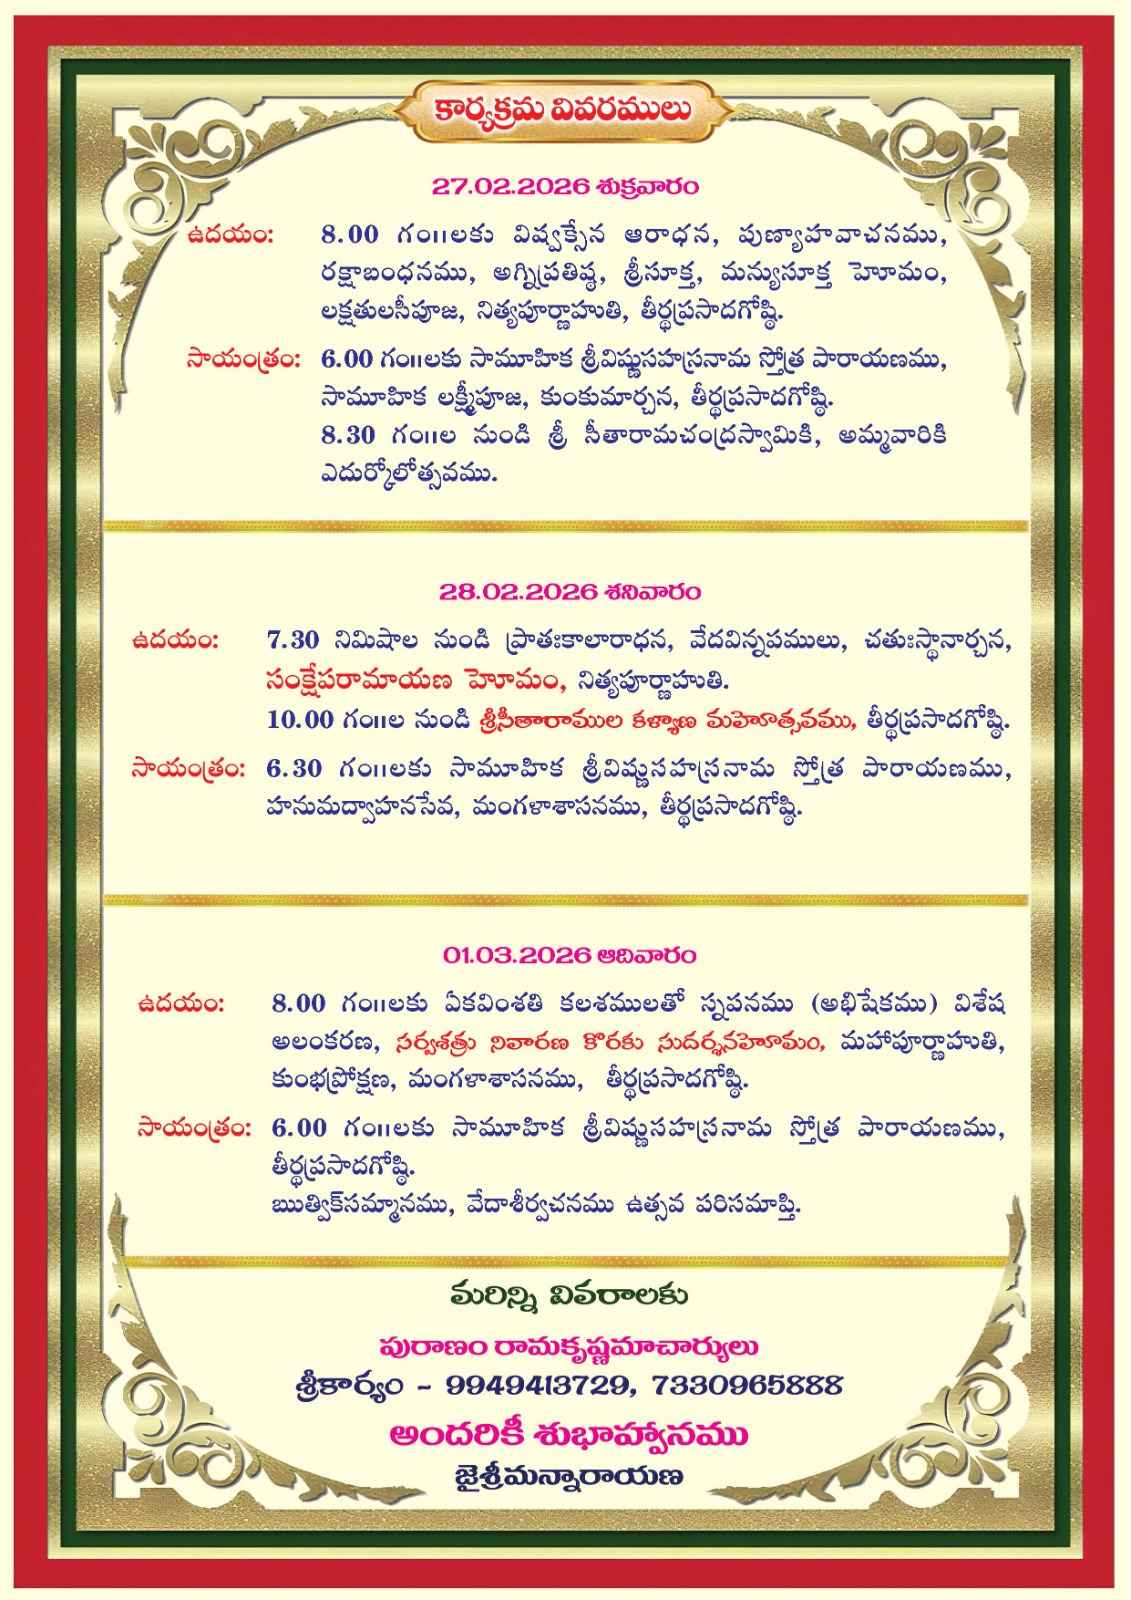 కార్యక్రమ వివరములు
27.02.2026 శుక్రవారం
ఉదయం: 8.00 గం॥లకు విష్వక్సేన ఆరాధన, పుణ్యాహవాచనము,
రక్షాబంధనము, అగ్నిప్రతిష్ఠ, శ్రీసూక్త, మన్యుసూక్త హెూమం,
లక్షతులసీపూజ, నిత్యపూర్ణాహుతి, తీర్థప్రసాదగోష్ఠి.
సాయంత్రం: 6.00 గం॥లకు సామూహిక శ్రీవిష్ణుసహస్రనామ స్తోత్ర పారాయణము,
సామూహిక లక్ష్మీపూజ, కుంకుమార్చన, తీర్థప్రసాదగోష్ఠి.
8.30 గం॥ల నుండి శ్రీ సీతారామచంద్రస్వామికి, అమ్మవారికి
ఎదుర్కోలోత్సవము.
28.02.2026 శనివారం
ఉదయం: 7.30 నిమిషాల నుండి ప్రాతఃకాలారాధన, వేదవిన్నపములు, చతుఃస్థానార్చన,
సంక్షేపరామాయణ హెూమం, నిత్యపూర్ణాహుతి.
10.00 గం॥ల నుండి శ్రీసీతారాముల కళ్యాణ మహెూత్సవము, తీర్థప్రసాదగోష్ఠి.
సాయంత్రం: 6.30 గం॥లకు సామూహిక శ్రీవిష్ణుసహస్రనామ స్తోత్ర పారాయణము,
హనుమద్వాహనసేవ, మంగళాశాసనము, తీర్థప్రసాదగోష్ఠి.
01.03.2026 ఆదివారం
ఉదయం: 8.00 గం॥లకు ఏకవింశతి కలశములతో స్నపనము (అభిషేకము) విశేష
అలంకరణ, సర్వశత్రు నివారణ కొరకు సుదర్శనహెూమం, మహాపూర్ణాహుతి,
కుంభప్రోక్షణ, మంగళాశాసనము, తీర్థప్రసాదగోష్ఠి.
సాయంత్రం: 6.00 గం॥లకు సామూహిక శ్రీవిష్ణుసహస్రనామ స్తోత్ర పారాయణము,
తీర్థప్రసాదగోష్ఠి.
ఋత్విక్‌సమ్మానము, వేదాశీర్వచనము ఉత్సవ పరిసమాప్తి.
మరిన్ని వివరాలకు
పురాణం రామకృష్ణమాచార్యులు
శ్రీకార్యం - 9949413729, 7330965888
అందరికీ శుభాహ్వానము
జైశ్రీమన్నారాయణ